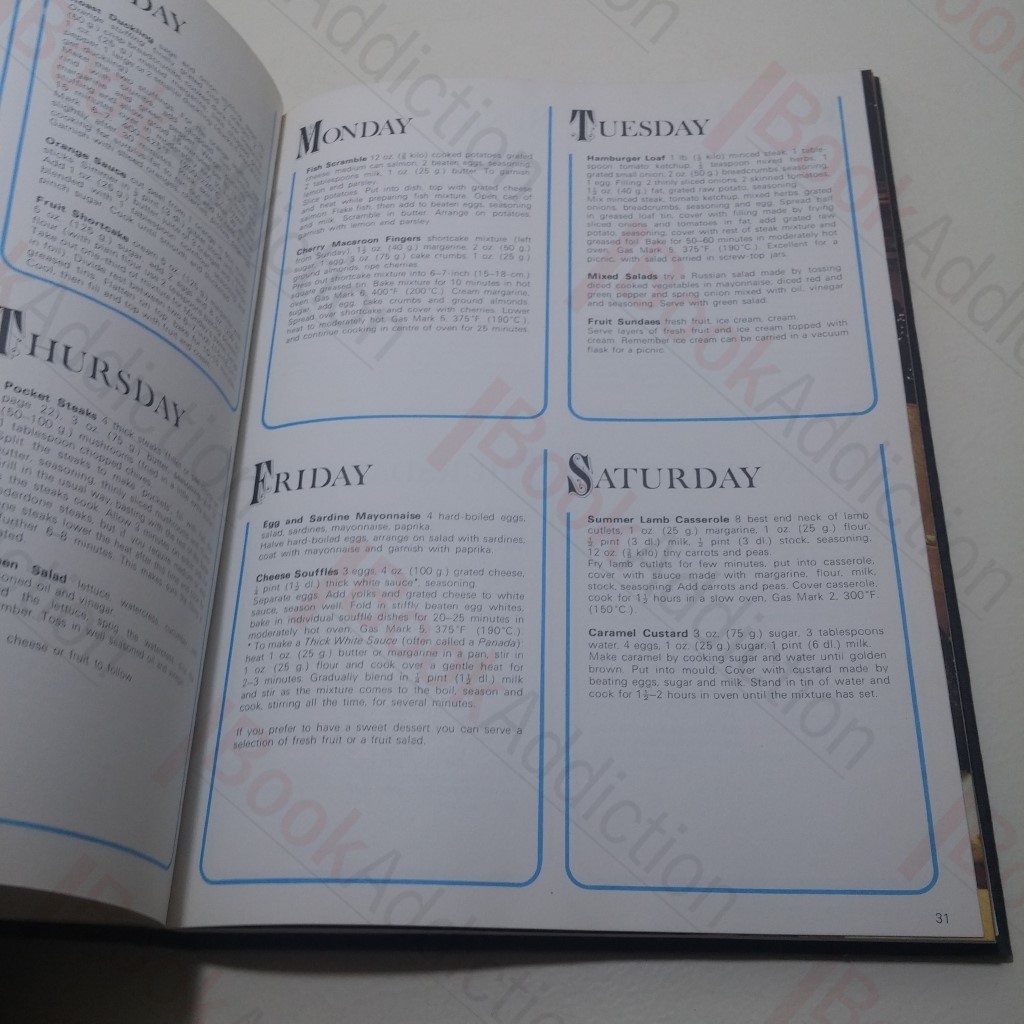 DAY
Roast Duckling
Orange stuffing
Orange Sauce
pinch sugar. Cook
Fruit Shortcake
5 oz. (125 g.)
flour (with
Take out one-third of mix
in foil). Divide rest between two
greased tins. Flatten
Cool, then fill and top with fruit
THURSDAY
Pocket Steaks 4 thick steaks
page 22), 3 oz. (75 g.) butter
(50–100 g.) mushrooms
tablespoon chopped chives.
Split the steaks to make 'pockets'
butter, seasoning, thinly sliced
grill in the usual way, basting with
the steaks cook. Allow 3
underdone steaks, but if you
steaks lower the heat after the
further 6–8 minutes. This makes
Salad lettuce, watercress
oil and vinegar
the lettuce, sprig the watercress
Toss in well seasoned oil and
cheese or fruit to follow.
MONDAY
Fish Scramble 12 oz. (⅜ kilo) cooked potatoes, grated
cheese, medium can salmon, 2 beaten eggs, seasoning,
2 tablespoons milk, 1 oz. (25 g.) butter. To garnish
lemon and parsley.
Slice potatoes. Put into dish, top with grated cheese
and heat while preparing fish mixture. Open can of
salmon. Flake fish, then add to beaten eggs, seasoning
and milk. Scramble in butter. Arrange on potatoes,
garnish with lemon and parsley.
Cherry Macaroon Fingers shortcake mixture (left
from Sunday), 1½ oz. (40 g.) margarine, 2 oz. (50 g.)
sugar, 1 egg, 3 oz. (75 g.) cake crumbs, 1 oz. (25 g.)
ground almonds, ripe cherries.
Press out shortcake mixture into 6–7-inch (15–18 cm.)
square greased tin. Bake mixture for 10 minutes in hot
oven, Gas Mark 6, 400°F. (200°C.). Cream margarine,
sugar, add egg, cake crumbs and ground almonds.
Spread over shortcake and cover with cherries. Lower
heat to moderately hot, Gas Mark 5, 375°F. (190°C.),
and continue cooking in centre of oven for 25 minutes.
TUESDAY
Hamburger Loaf 1 lb. (½ kilo) minced steak, 1 table-
spoon tomato ketchup, ½ teaspoon mixed herbs, 1
grated small onion, 2 oz. (50 g.) breadcrumbs, seasoning,
1 egg. Filling 2 thinly sliced onions, 2 skinned tomatoes,
1½ oz. (40 g.) fat, grated raw potato, seasoning.
Mix minced steak, tomato ketchup, mixed herbs, grated
onions, breadcrumbs, seasoning and egg. Spread half
in greased loaf tin, cover with filling made by frying
sliced onions and tomatoes in fat, add grated raw
potato, seasoning, cover with rest of steak mixture and
greased foil. Bake for 50–60 minutes in moderately hot
oven, Gas Mark 5, 375°F. (190°C.). Excellent for a
picnic, with salad carried in screw-top jars.
Mixed Salads try a Russian salad made by tossing
diced cooked vegetables in mayonnaise, diced red and
green pepper and spring onion mixed with oil, vinegar
and seasoning. Serve with green salad.
Fruit Sundaes fresh fruit, ice cream, cream.
Serve layers of fresh fruit and ice cream topped with
cream. Remember ice cream can be carried in a vacuum
flask for a picnic.
FRIDAY
Egg and Sardine Mayonnaise 4 hard-boiled eggs,
salad, sardines, mayonnaise, paprika.
Halve hard-boiled eggs, arrange on salad with sardines,
coat with mayonnaise and garnish with paprika.
Cheese Soufflés 3 eggs, 4 oz. (100 g.) grated cheese,
¼ pint (1½ dl.) thick white sauce*, seasoning.
Separate eggs. Add yolks and grated cheese to white
sauce, season well. Fold in stiffly beaten egg whites,
bake in individual soufflé dishes for 20–25 minutes in
moderately hot oven, Gas Mark 5, 375°F. (190°C.)
* To make a Thick White Sauce (often called a Panada)
heat 1 oz. (25 g.) butter or margarine in a pan, stir in
1 oz. (25 g.) flour and cook over a gentle heat for
2–3 minutes. Gradually blend in ¼ pint (1½ dl.) milk
and stir as the mixture comes to the boil, season and
cook, stirring all the time, for several minutes.
If you prefer to have a sweet dessert you can serve a
selection of fresh fruit or a fruit salad.
SATURDAY
Summer Lamb Casserole 8 best end neck of lamb
cutlets, 1 oz. (25 g.) margarine, 1 oz. (25 g.) flour,
½ pint (3 dl.) milk, ½ pint (3 dl.) stock, seasoning,
12 oz. (⅜ kilo) tiny carrots and peas.
Fry lamb cutlets for few minutes, put into casserole,
cover with sauce made with margarine, flour, milk,
stock, seasoning. Add carrots and peas. Cover casserole,
cook for 1½ hours in a slow oven, Gas Mark 2, 300°F.
(150°C.).
Caramel Custard 3 oz. (75 g.) sugar, 3 tablespoons
water, 4 eggs, 1 oz. (25 g.) sugar, 1 pint (6 dl.) milk.
Make caramel by cooking sugar and water until golden
brown. Put into mould. Cover with custard made by
beating eggs, sugar and milk. Stand in tin of water and
cook for 1½–2 hours in oven until the mixture has set.
31
BookAddiction